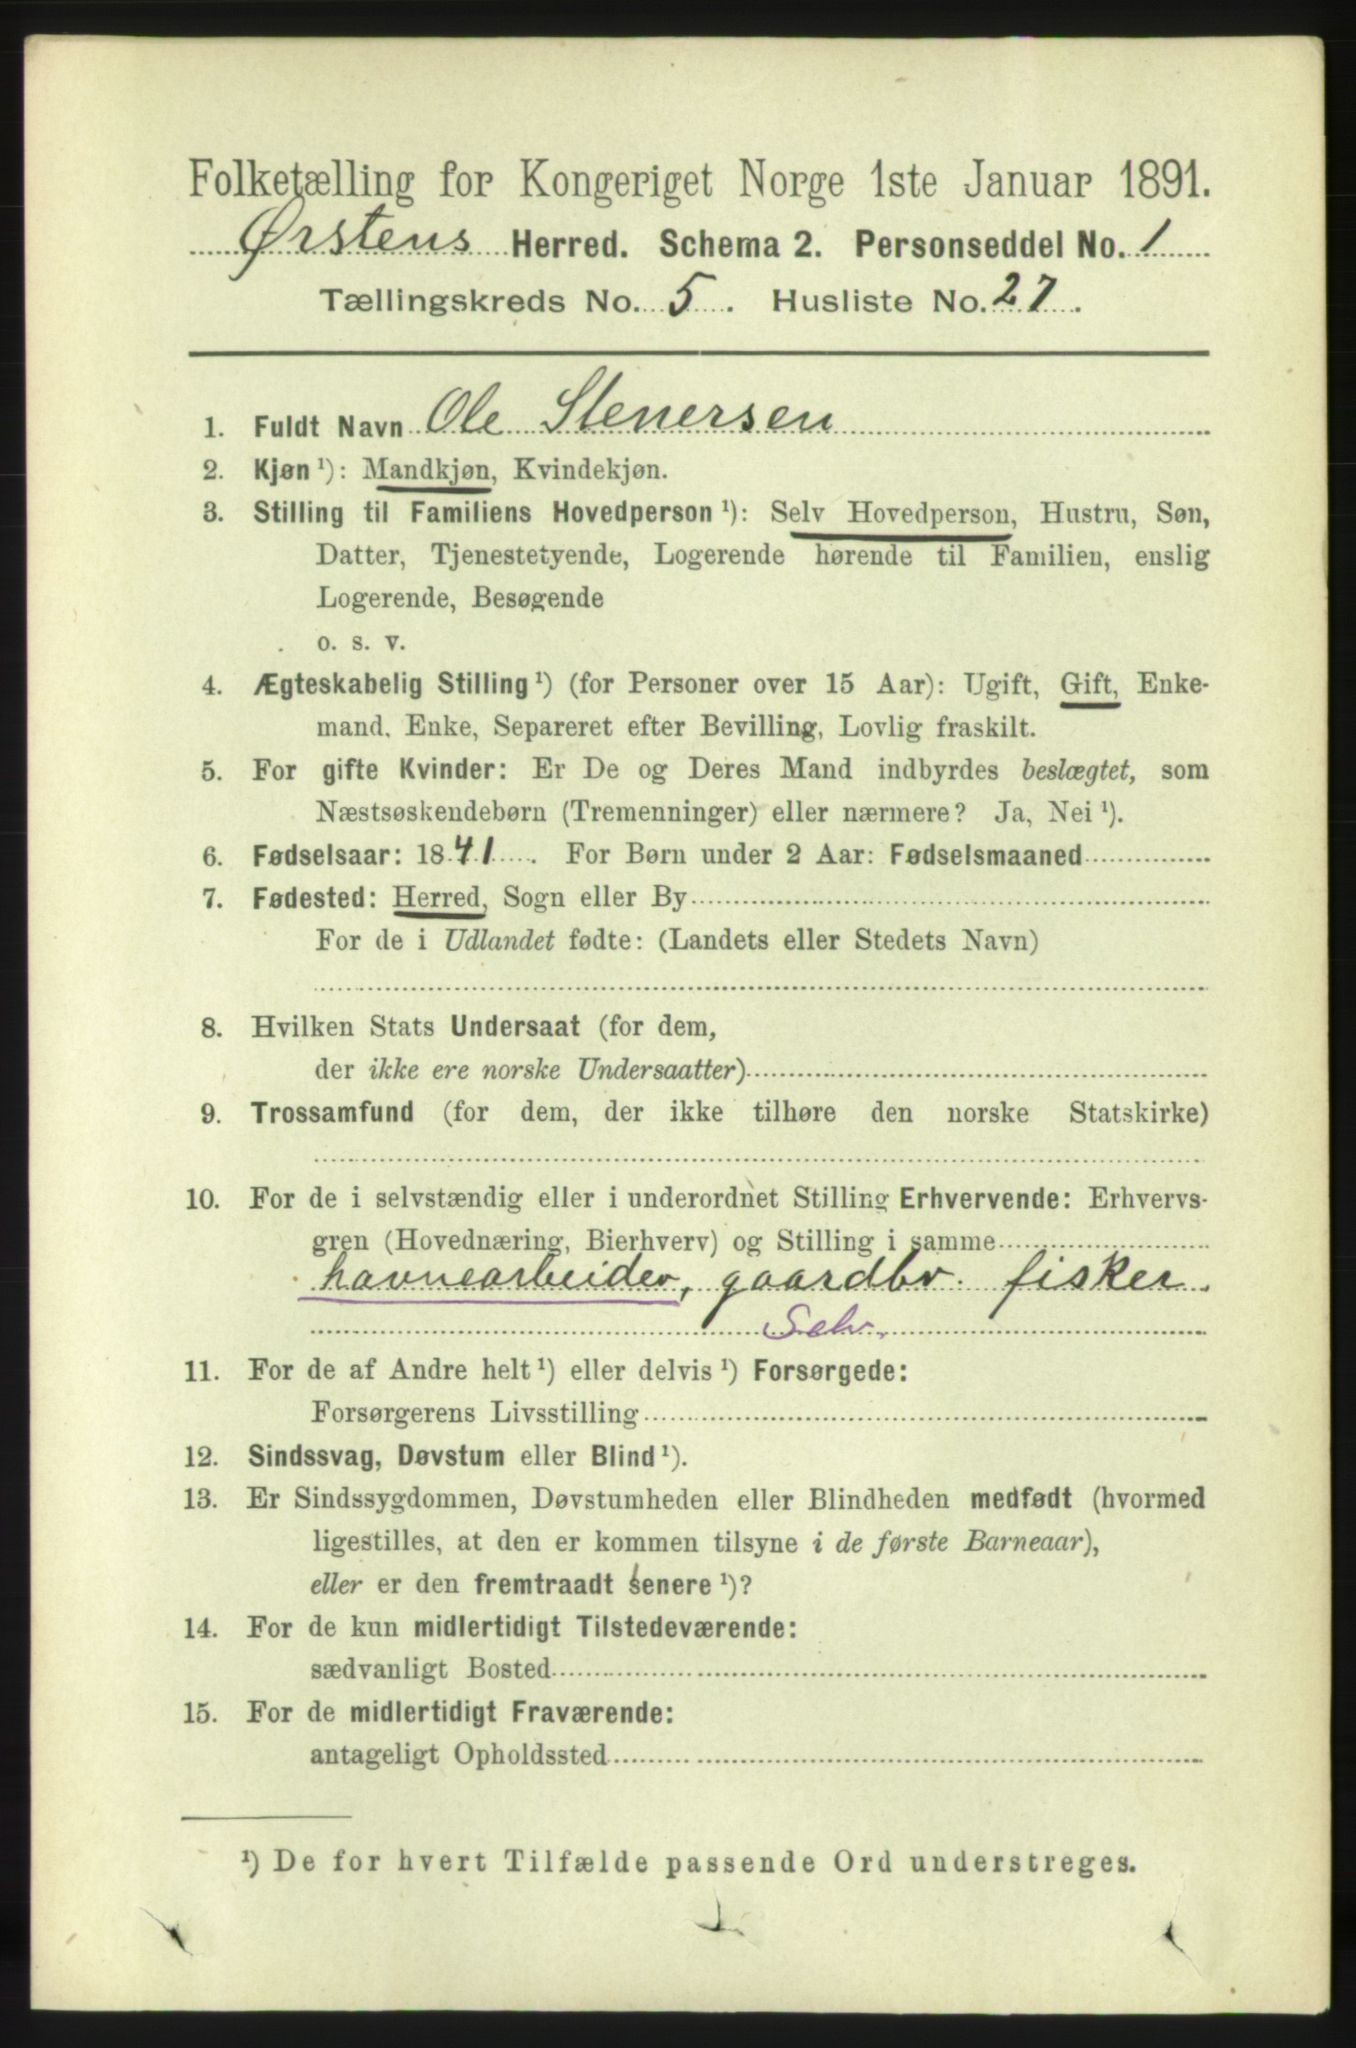 Folketælling for Kongeriget Norge 1ste Januar 1891.
Ørstens Herred. Schema 2. Personseddel No. 1
Tællingskreds No. 5. Husliste No. 27.
1. Fuldt Navn Ole Stenersen
2. Kjøn ¹): Mandkjøn, Kvindekjøn.
3. Stilling til Familiens Hovedperson ¹): Selv Hovedperson, Hustru, Søn,
Datter, Tjenestetyende, Logerende hørende til Familien, enslig
Logerende, Besøgende
o. s. v.
4. Ægteskabelig Stilling ¹) (for Personer over 15 Aar): Ugift, Gift, Enke-
mand, Enke, Separeret efter Bevilling, Lovlig fraskilt.
5. For gifte Kvinder: Er De og Deres Mand indbyrdes beslægtet, som
Næstsøskendebørn (Tremenninger) eller nærmere? Ja, Nei ¹).
6. Fødselsaar: 1841. For Børn under 2 Aar: Fødselsmaaned
7. Fødested: Herred, Sogn eller By
For de i Udlandet fødte: (Landets eller Stedets Navn)
8. Hvilken Stats Undersaat (for dem,
der ikke ere norske Undersaatter)
9. Trossamfund (for dem, der ikke tilhøre den norske Statskirke)
10. For de i selvstændig eller i underordnet Stilling Erhvervende: Erhvervs-
gren (Hovednæring, Bierhverv) og Stilling i samme
havnearbeider, gaardbr. fisker.
Selv.
11. For de af Andre helt ¹) eller delvis ¹) Forsørgede:
Forsørgerens Livsstilling
12. Sindssvag, Døvstum eller Blind ¹).
13. Er Sindssygdommen, Døvstumheden eller Blindheden medfødt (hvormed
ligestilles, at den er kommen tilsyne i de første Barneaar),
eller er den fremtraadt senere ¹)?
14. For de kun midlertidigt Tilstedeværende:
sædvanligt Bosted
15. For de midlertidigt Fraværende:
antageligt Opholdssted
¹) De for hvert Tilfælde passende Ord understreges.